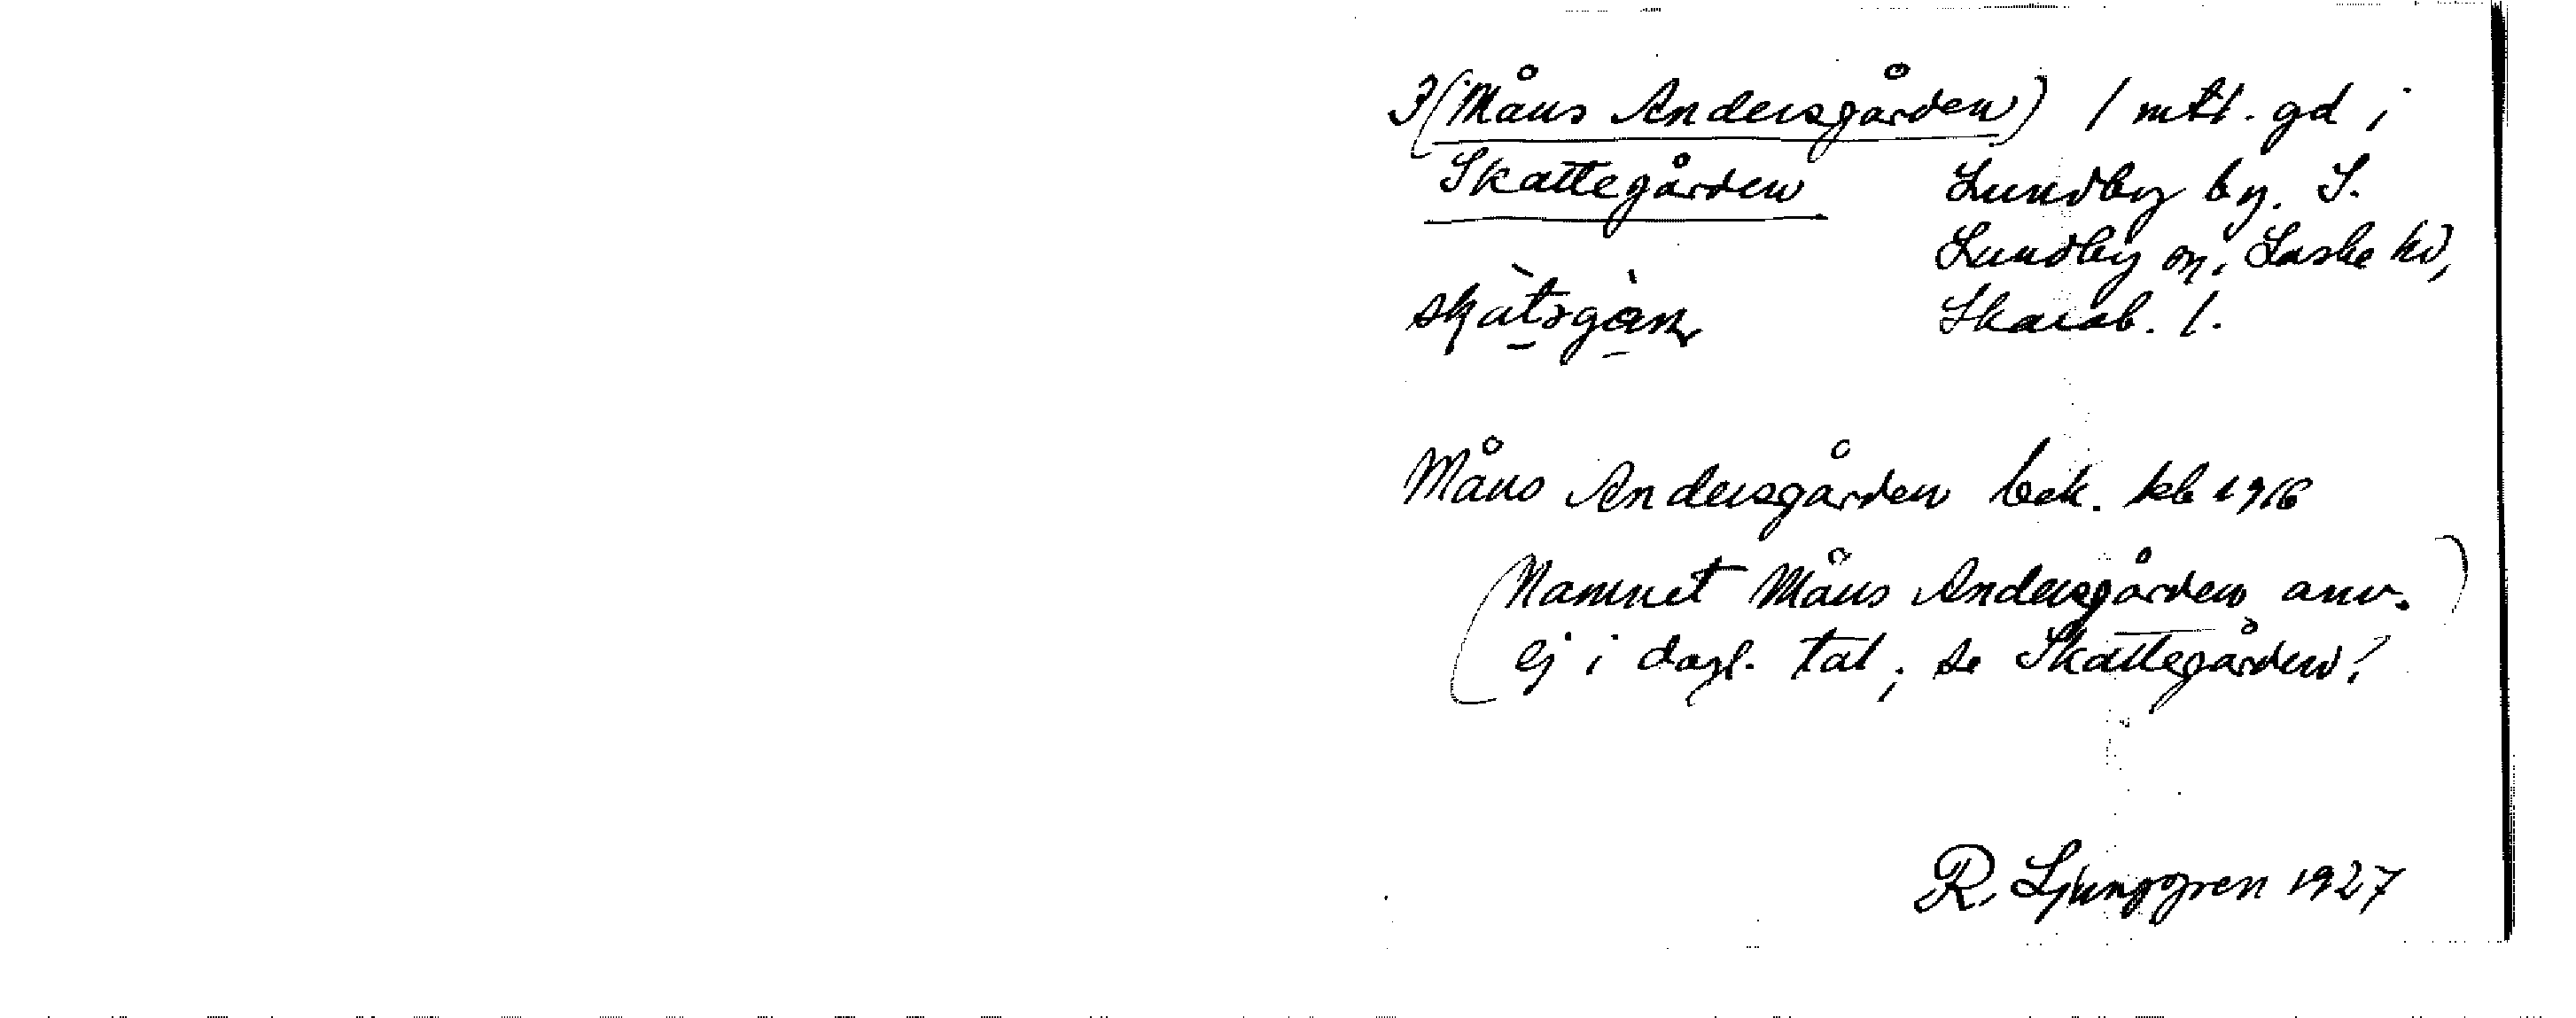 3 (Måns Andersgården) 1 mtl. gd i
Skattegården Lundby by. S.
Lundby sn, Laske hd,
skatsgån Skarab. l.
Måns Andersgården bek. kb 1916
(Namnet Måns Andersgården anv.)
ej i dagl. tal; se Skattegården!
R. Ljunggren 1927